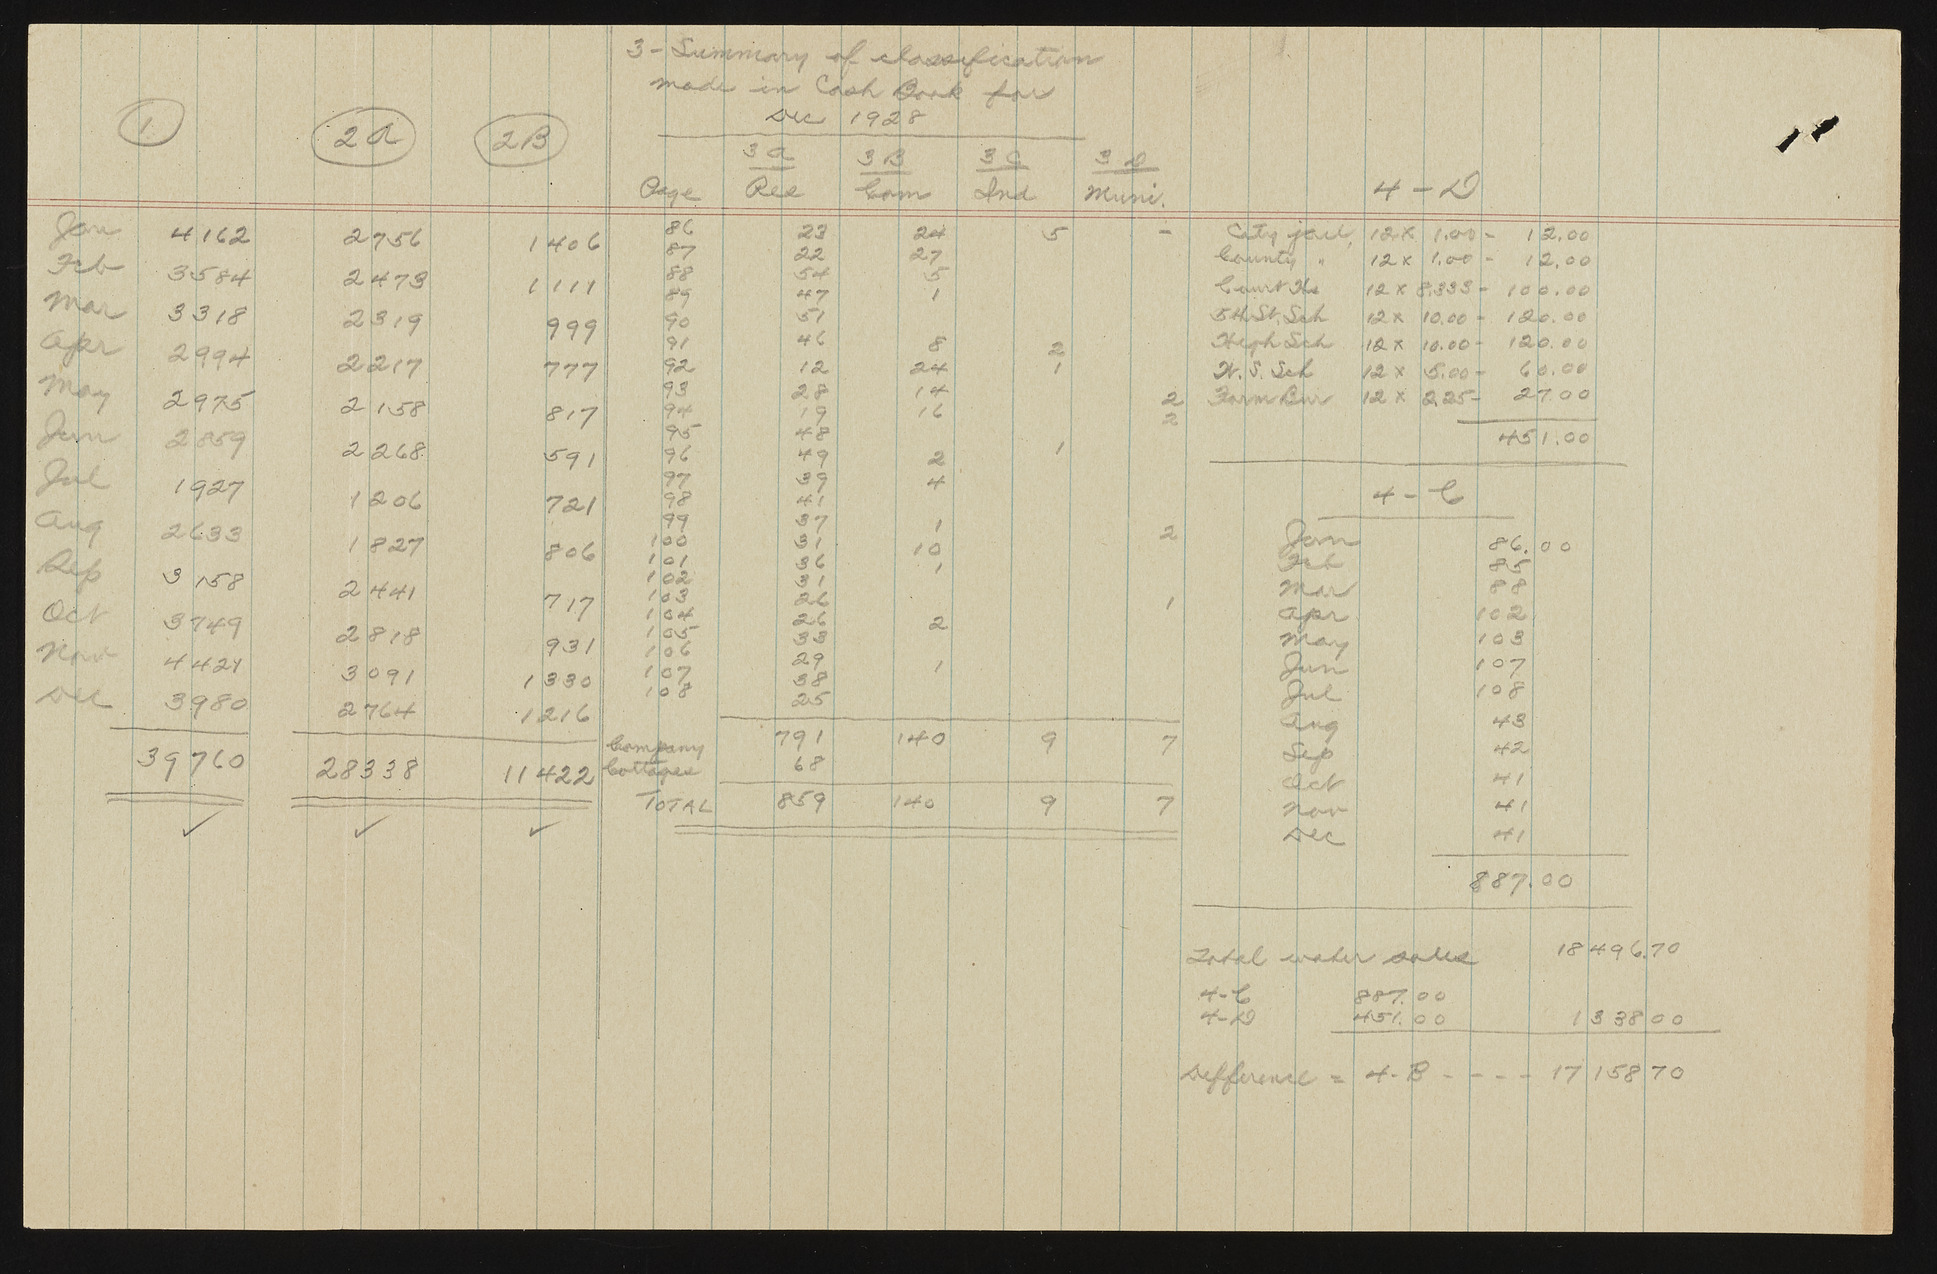 3 - Summary of classification
made in Cash Book for
Dec 1928
1 2A 2B
3A 3B 3C 3D
Page Res Com Ind Muni.
Jan 4162 2756 1406
Feb 3584 2473 1111
Mar 3318 2319 999
Apr 2994 2217 777
May 2975 2158 817
Jun 2859 2268 591
Jul 1927 1206 721
Aug 2633 1827 806
Sep 3158 2441 717
Oct 3749 2818 931
Nov 4421 3091 1330
Dec 3980 2764 1216
39760 28338 11422
✓ ✓ ✓
86 23 24 5 -
87 22 27
88 54 5
89 47 1
90 51
91 46 8 2
92 12 24 1
93 28 14 2
94 19 16 2
95 48
96 49 2 1
97 39 4
98 41
99 37 1
100 31 10 2
101 36 1
102 31
103 26 1
104 26 2
105 33
106 29 1
107 38
108 25
791 140 9 7
Company
Cottages 68
TOTAL 859 140 9 7
4 - D
City jail, 12 x 1.00 - 12.00
County " 12 x 1.00 - 12.00
Court Ho 12 x 8.333 - 100.00
5th St. Sch 12 x 10.00 - 120.00
High Sch 12 x 10.00 - 120.00
W. S. Sch 12 x 5.00 - 60.00
Farm Bur 12 x 2.25 - 27.00
451.00
4 - C
Jan 86.00
Feb 85
Mar 88
Apr 102
May 103
Jun 107
Jul 108
Aug 43
Sep 42
Oct 41
Nov 41
Dec 41
887.00
Total water sales 18496.70
4-C 887.00
4-D 451.00 133800
Difference = 4-B - - - - 17 158 70